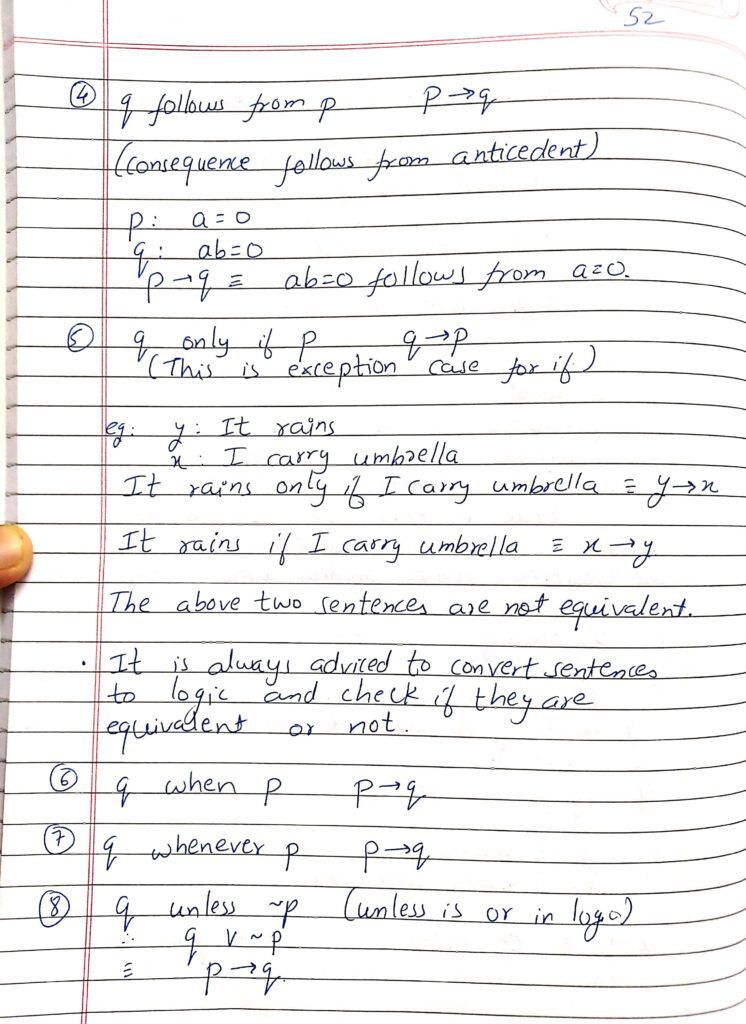 52
④ q follows from p p→q
(consequence follows from anticedent)
p: a=0
q: ab=0
p→q ≡ ab=0 follows from a=0.
⑤ q only if p q→p
(This is exception case for if)
eg: y: It rains
x: I carry umbrella
It rains only if I carry umbrella ≡ y→x
It rains if I carry umbrella ≡ x→y
The above two sentences are not equivalent.
. It is always adviced to convert sentences
to logic and check if they are
equivalent or not.
⑥ q when p p→q
⑦ q whenever p p→q
⑧ q unless ~p (unless is or in logic)
∴ q ∨ ~p
≡ p→q